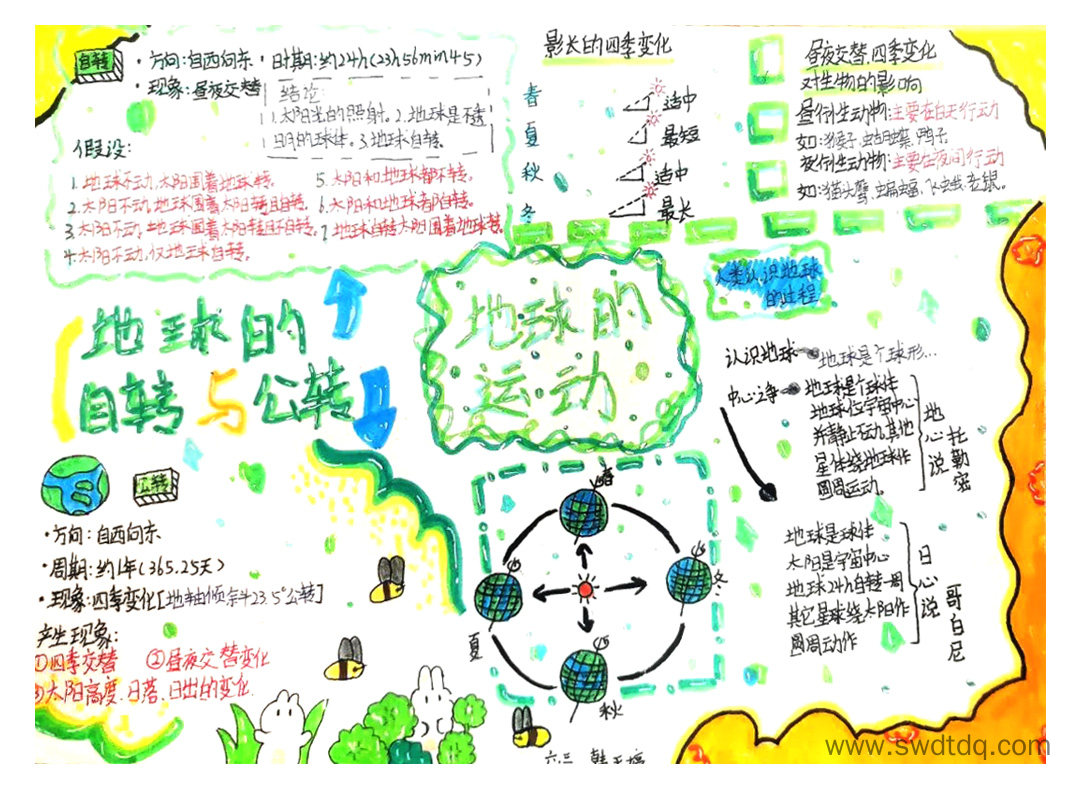 自转
·方向:自西向东 ·时期:约24h(23h56min4S)
·现象:昼夜交替
结论:
1.太阳光的照射。2.地球是不透
明的球体。3.地球自转。
假设:
1.地球不动,太阳围着地球转。
2.太阳不动,地球围着太阳转且自转。
3.太阳不动,地球围着太阳转且不自转。
4.太阳不动,仅地球自转。
5.太阳和地球都不转。
6.太阳和地球都自转。
7.地球自转太阳围着地球转。
影长的四季变化
春 适中
夏 最短
秋 适中
冬 最长
昼夜交替、四季变化
对生物的影响
昼行性动物:主要在白天行动
如:猴子、蝴蝶、鸭子。
夜行性动物:主要在夜间行动
如:猫头鹰、蝙蝠、飞蛾、老鼠。
地球的
自转与公转
地球的
运动
人类认识地球
的过程
认识地球 地球是个球形…
中心之争 地球是个球体
地球位宇宙中心
并静止不动,其他
星体绕地球作
圆周运动。
地心说
托勒密
地球是球体
太阳是宇宙中心
地球24h自转一周
其它星球绕太阳作
圆周动作
日心说
哥白尼
公转
·方向:自西向东
·周期:约1年(365.25天)
·现象:四季变化[地轴倾斜23.5°公转]
产生现象:
①四季交替 ②昼夜交替变化
③太阳高度、日落、日出的变化
春
冬
夏
秋
六.三
www.swdtdq.com